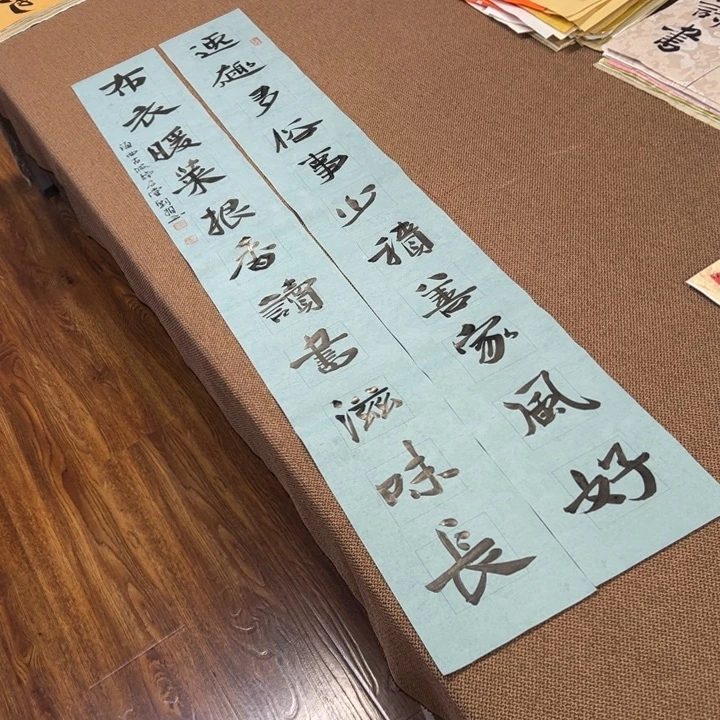 逸趣多俗事少積善家風好
布衣暖菜根香讀書滋味長
書